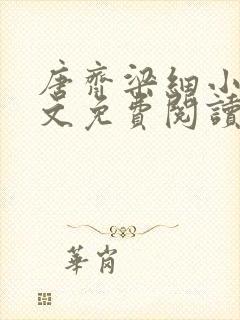 唐齊梁細小
文免費閱讀
華崗